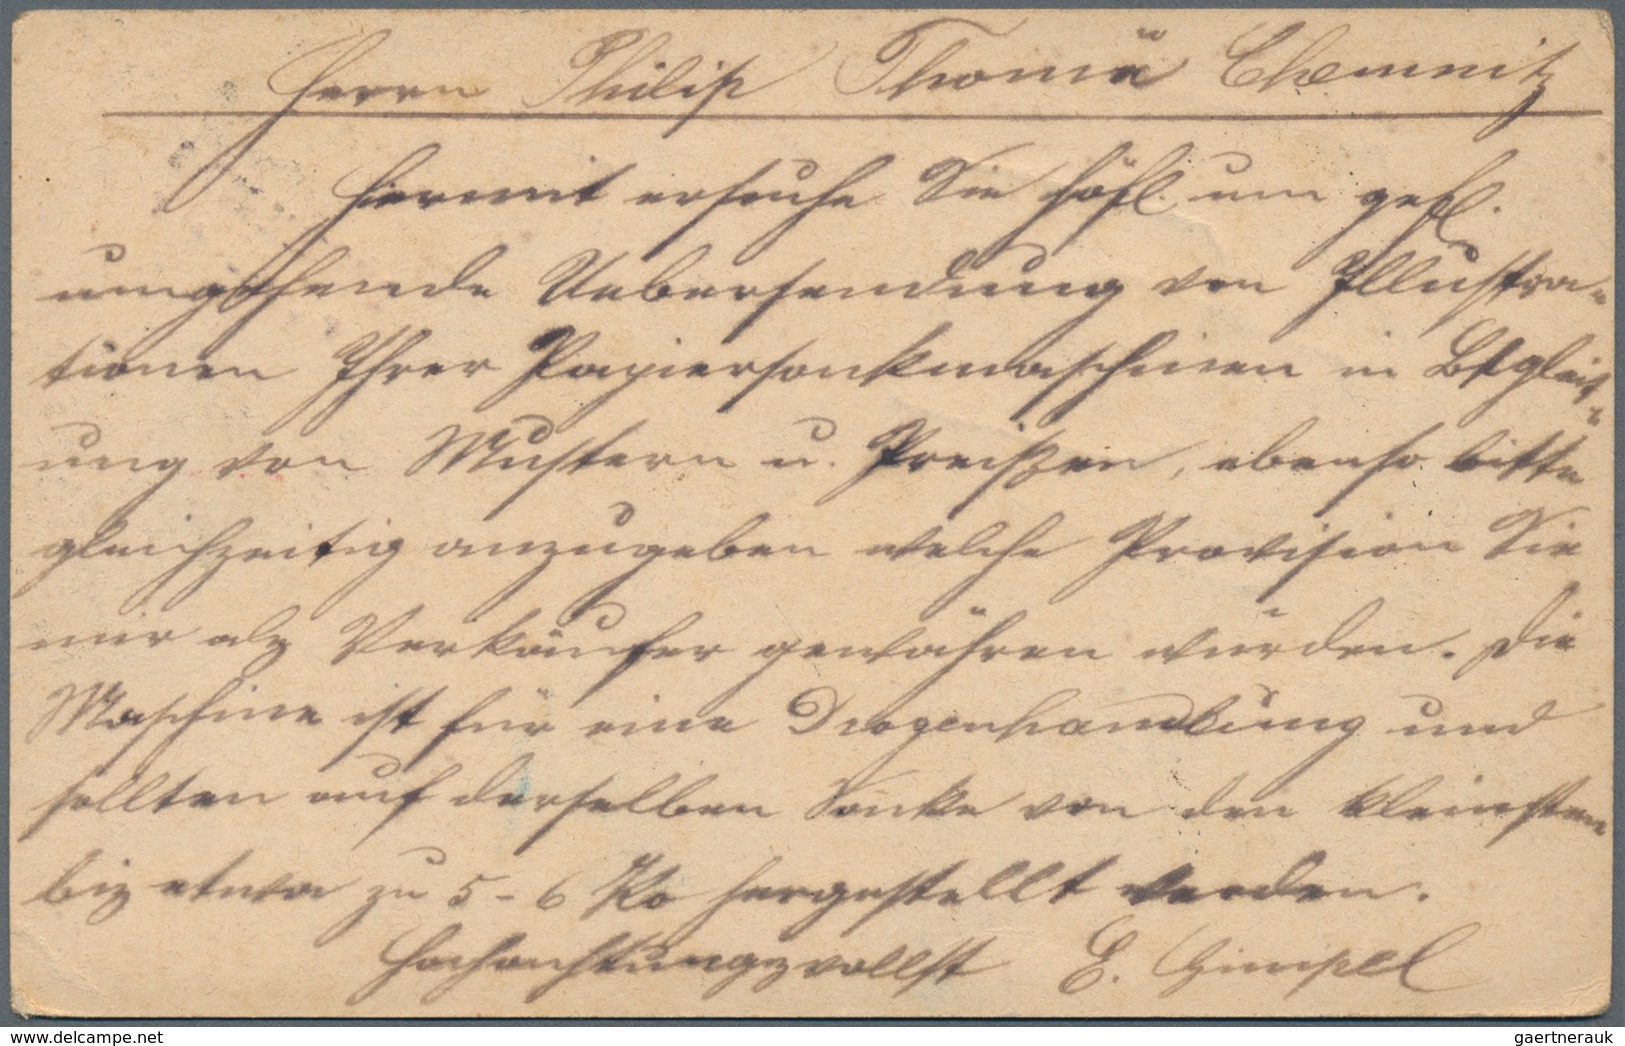 Herrn Philip Thomä Chemnitz
Hiermit ersuche Sie höfl. um gefl.
umgehende Uebersendung von Illustra-
tionen Ihrer Papiersackmaschinen in Begleit-
ung von Mustern u. Preißen, ebenso bitte
gleichzeitig anzugeben welche Provision Sie
mir als Verkäufer gewähren würden. Die
Maschine ist für eine Drogenhandlung und
sollten auf derselben Säcke von den kleinsten
bis etwa zu 5-6 Ko hergestellt werden.
Hochachtungsvollst E. Gimpel
www.delcampe.net
gaertnerauk